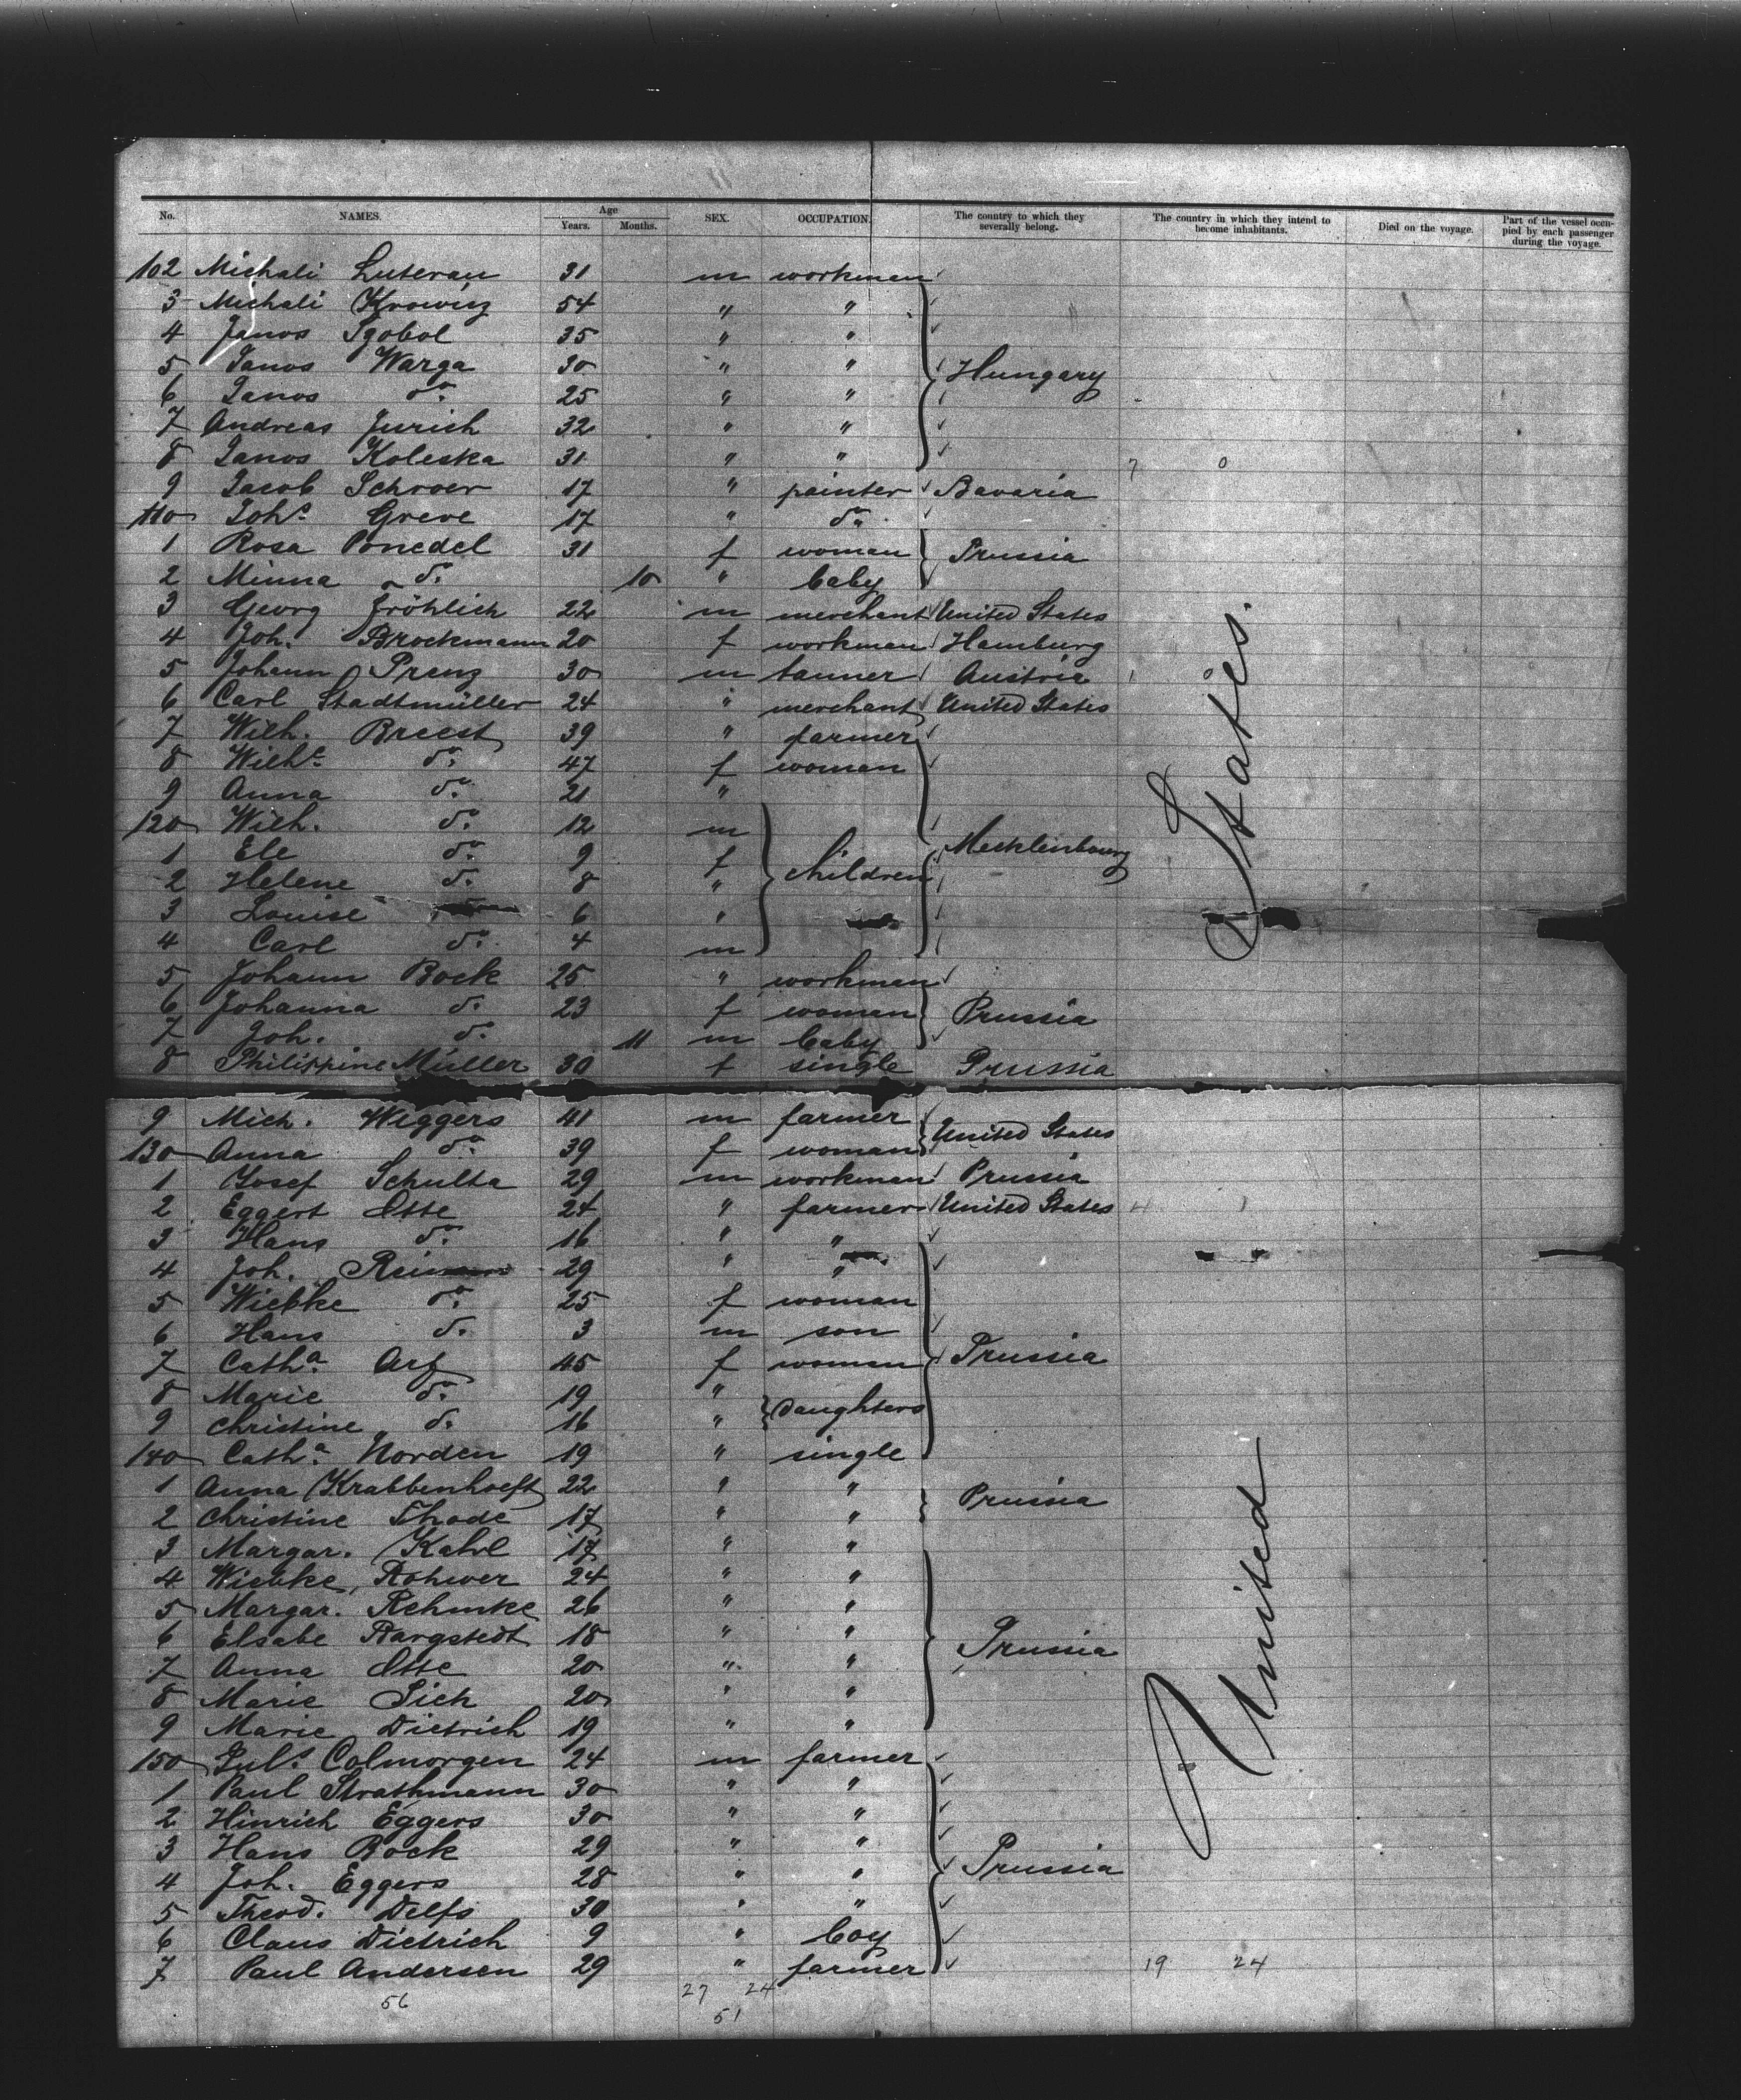 No. NAMES. Age Years. Months. SEX. OCCUPATION. The country to which they severally belong. The country in which they intend to become inhabitants. Died on the voyage. Part of the vessel occupied by each passenger during the voyage.
102 Michali Luterau 31 m workman
3 Michali Krowicz 54 " "
4 Janos Szobol 35 " "
5 Janos Warga 30 " " Hungary
6 Janos do. 25 " "
7 Andreas Jurich 32 " "
8 Janos Koleska 31 " " 7 0
9 Jacob Schroer 17 " painter Bavaria
110 Johs. Greve 17 " do.
1 Rosa Ponedel 31 f woman Prussia
2 Minna do. 10 " baby
3 Georg Fröhlich 22 m merchant United States
4 Joh. Brockmann 20 f workman Hamburg
5 Johann Prenz 30 m tanner Austria 1 0
6 Carl Stadtmüller 24 " merchant United States
7 Wilh. Breest 39 " farmer
8 Wilhe. do. 47 f woman
9 Anna do. 21 "
120 Wilh. do. 12 m
1 Ele do. 9 f children Mecklenbourg
2 Helene do. 8 "
3 Louise 6 "
4 Carl do. 4 m
5 Johann Bock 25 " workman
6 Johanna do. 23 f woman Prussia
7 Joh. do. 11 m baby
8 Philippine Müller 30 f single Prussia
9 Mich. Wiggers 41 m farmer United States
130 Anna do. 39 f woman
1 Josef Schulta 29 m workman Prussia
2 Eggert Otte 24 " farmer United States 4 1
3 Hans do. 16 " "
4 Joh. 29 " "
5 Wiebke do. 25 f woman
6 Hans do. 3 m son
7 Catha. Arp 45 f woman Prussia
8 Marie do. 19 " daughters
9 Christine do. 16 "
140 Catha. Norden 19 " single
1 Anna Krabbenhoeft 22 " " Prussia
2 Christine Thode 17 " "
3 Margar. Kahl 17 " "
4 Wiebke Rohwer 24 " "
5 Margar. Rehmke 26 " "
6 Elsabe Rargstedt 18 " " Prussia
7 Anna Otte 20 " "
8 Marie Sich 20 " "
9 Marie Dietrich 19 " "
150 Juls. Colmorgen 24 m farmer
1 Paul Strathmann 30 " "
2 Hinrich Eggers 30 " "
3 Hans Bock 29 " " Prussia
4 Joh. Eggers 28 " "
5 Theod. Delfs 30 " "
6 Claus Dietrich 9 " boy
7 Paul Andersen 29 " farmer 19 24
56 27 24
51
United States.